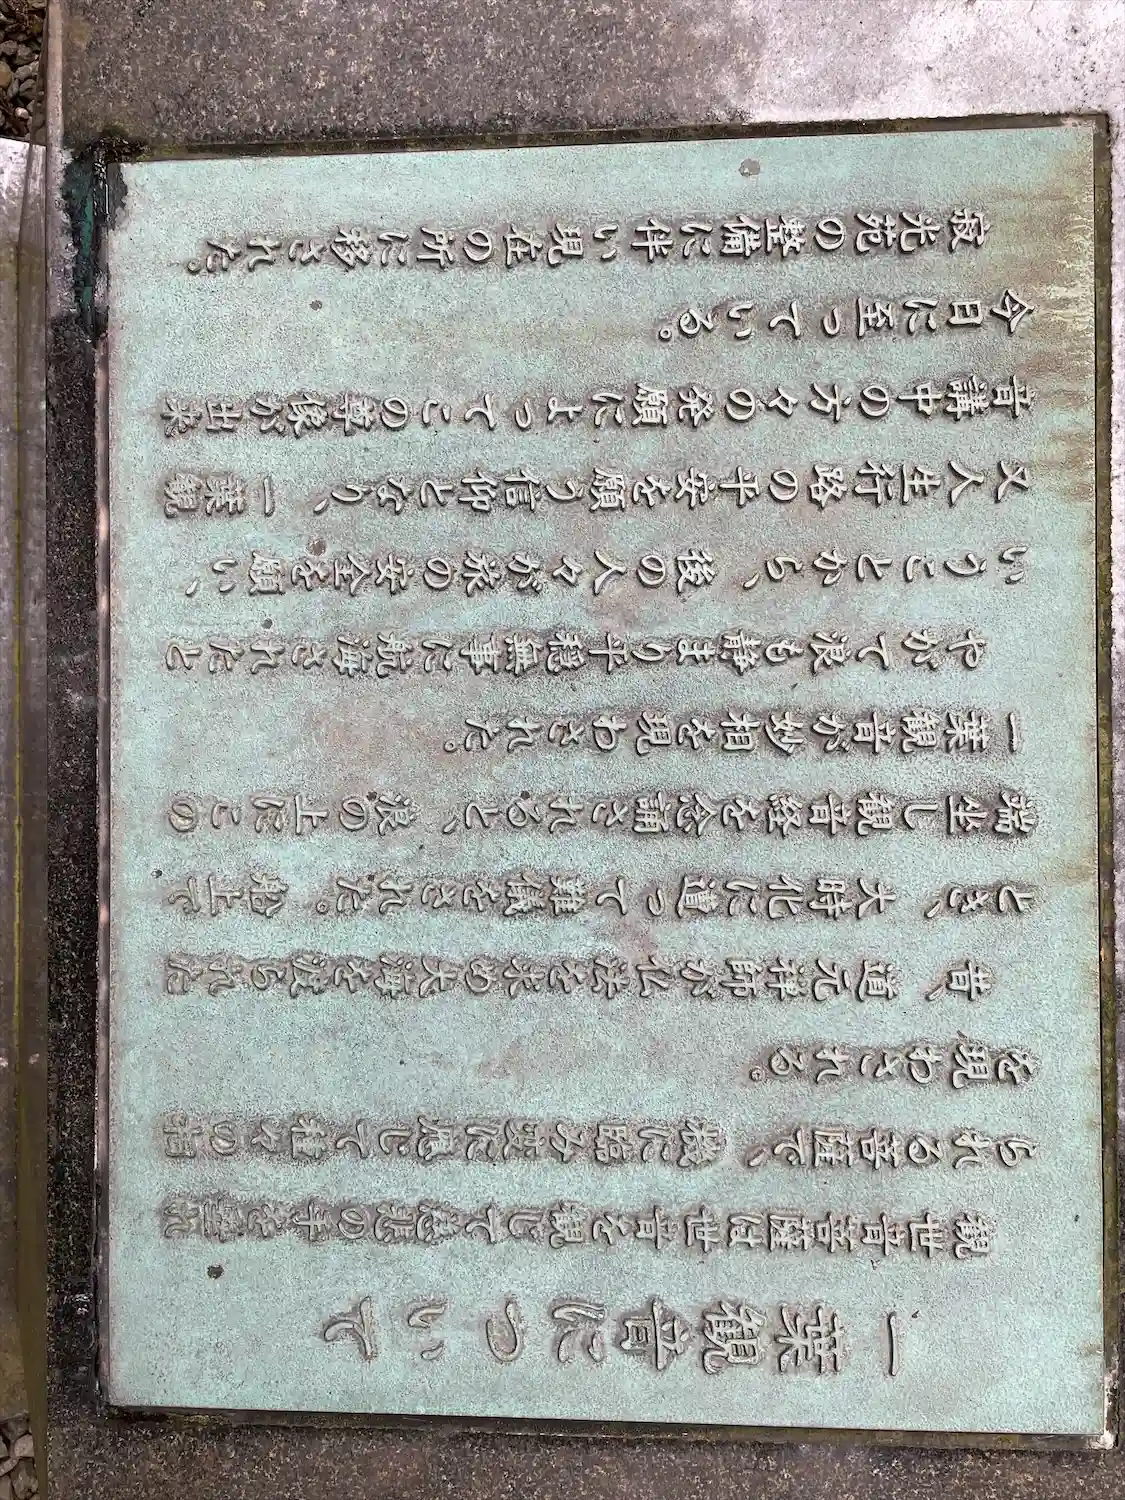 一葉観音について
観世音菩薩は世音を観じて慈悲の手を垂れ
られる菩薩で、機に臨み変に応じて種々の相
を現わされる。
昔、道元禅師が仏法を求め大海を渡られた
とき、大時化に遭って難儀をされた。船上で
端坐し観音経を念誦されると、浪の上にこの
一葉観音が妙相を現わされた。
やがて浪も静まり平穏無事に航海されたと
いうことから、後の人々が旅の安全を願い、
又人生行路の平安を願う信仰となり、一葉観
音講中の方々の発願によってこの尊像が出来
今日に至っている。
寂光苑の整備に伴い現在の所に移された。